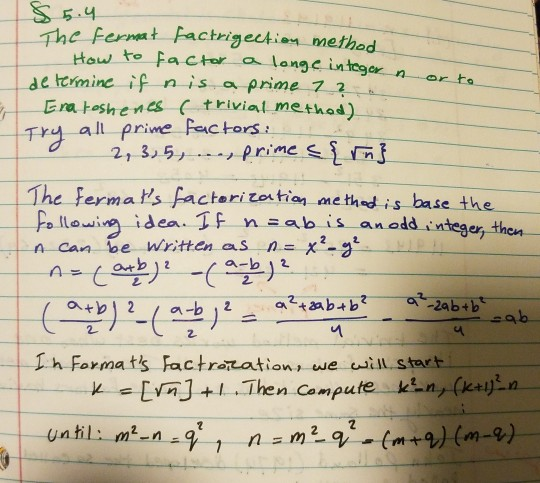 § 5.4
The Fermat Factrigection method
How to Factor a longe integer n or to
determine if n is a prime ? ?
Eratoshenes ( trivial method)
Try all prime factors:
2, 3, 5, ..., prime ≤ { √n }
The Fermat's factorization method is base the
following idea. If n = ab is an odd integer, then
n can be written as n = x² - y²
n = (a+b/2)² - (a-b/2)²
(a+b/2)² - (a-b/2)² = a²+2ab+b²/4 - a²-2ab+b²/4 = ab
In Format's Factrozation, we will start
k = [√n] + 1. Then Compute k²-n, (k+1)²-n
until: m²-n = q², n = m²-q² = (m+q)(m-q)